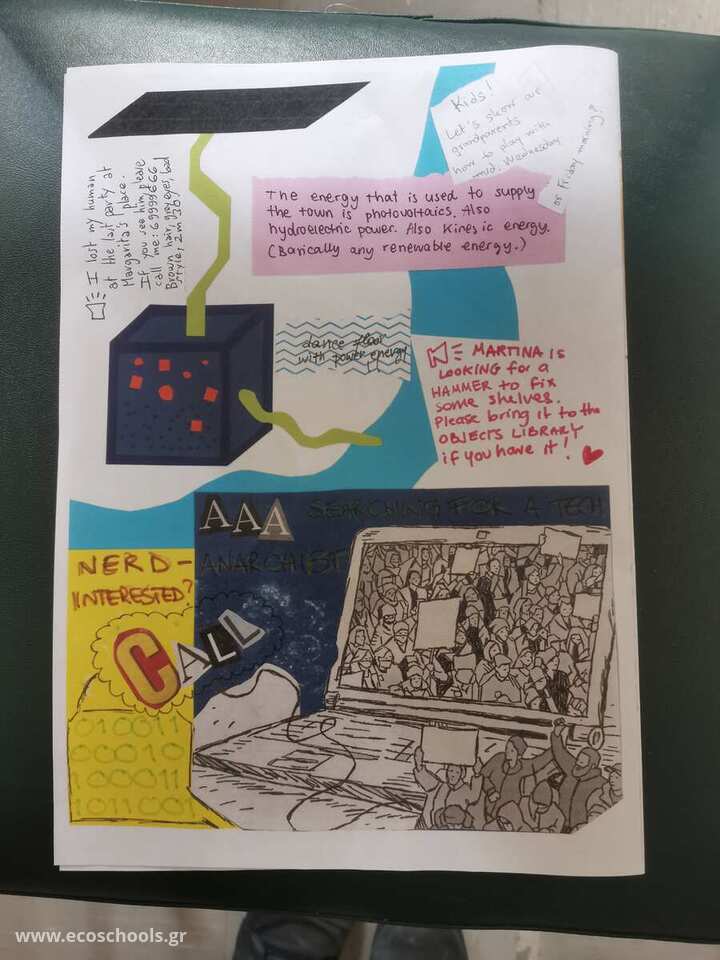 Kids!
Let's show our
grandparents
how to play with
mud. Wednesday
or Friday morning?
I lost my human
at the last party at
Margarita's place.
If you see him, please
call me: 69999666
Brown hair, grey eyes, bad
style, 2m36
The energy that is used to supply
the town is photovoltaics. Also
hydroelectric power. Also Kinesic energy.
(Barically any renewable energy.)
dance floor
with power energy
!!
MARTINA IS
LOOKING FOR A
HAMMER TO FIX
SOME SHELVES.
Please bring it to the
OBJECTS LIBRARY
if you have it!
AAA SEARCHING FOR A TECH
NERD - ANARCHIST
INTERESTED?
CALL
010011
00010
100011
1011001
www.ecoschools.gr